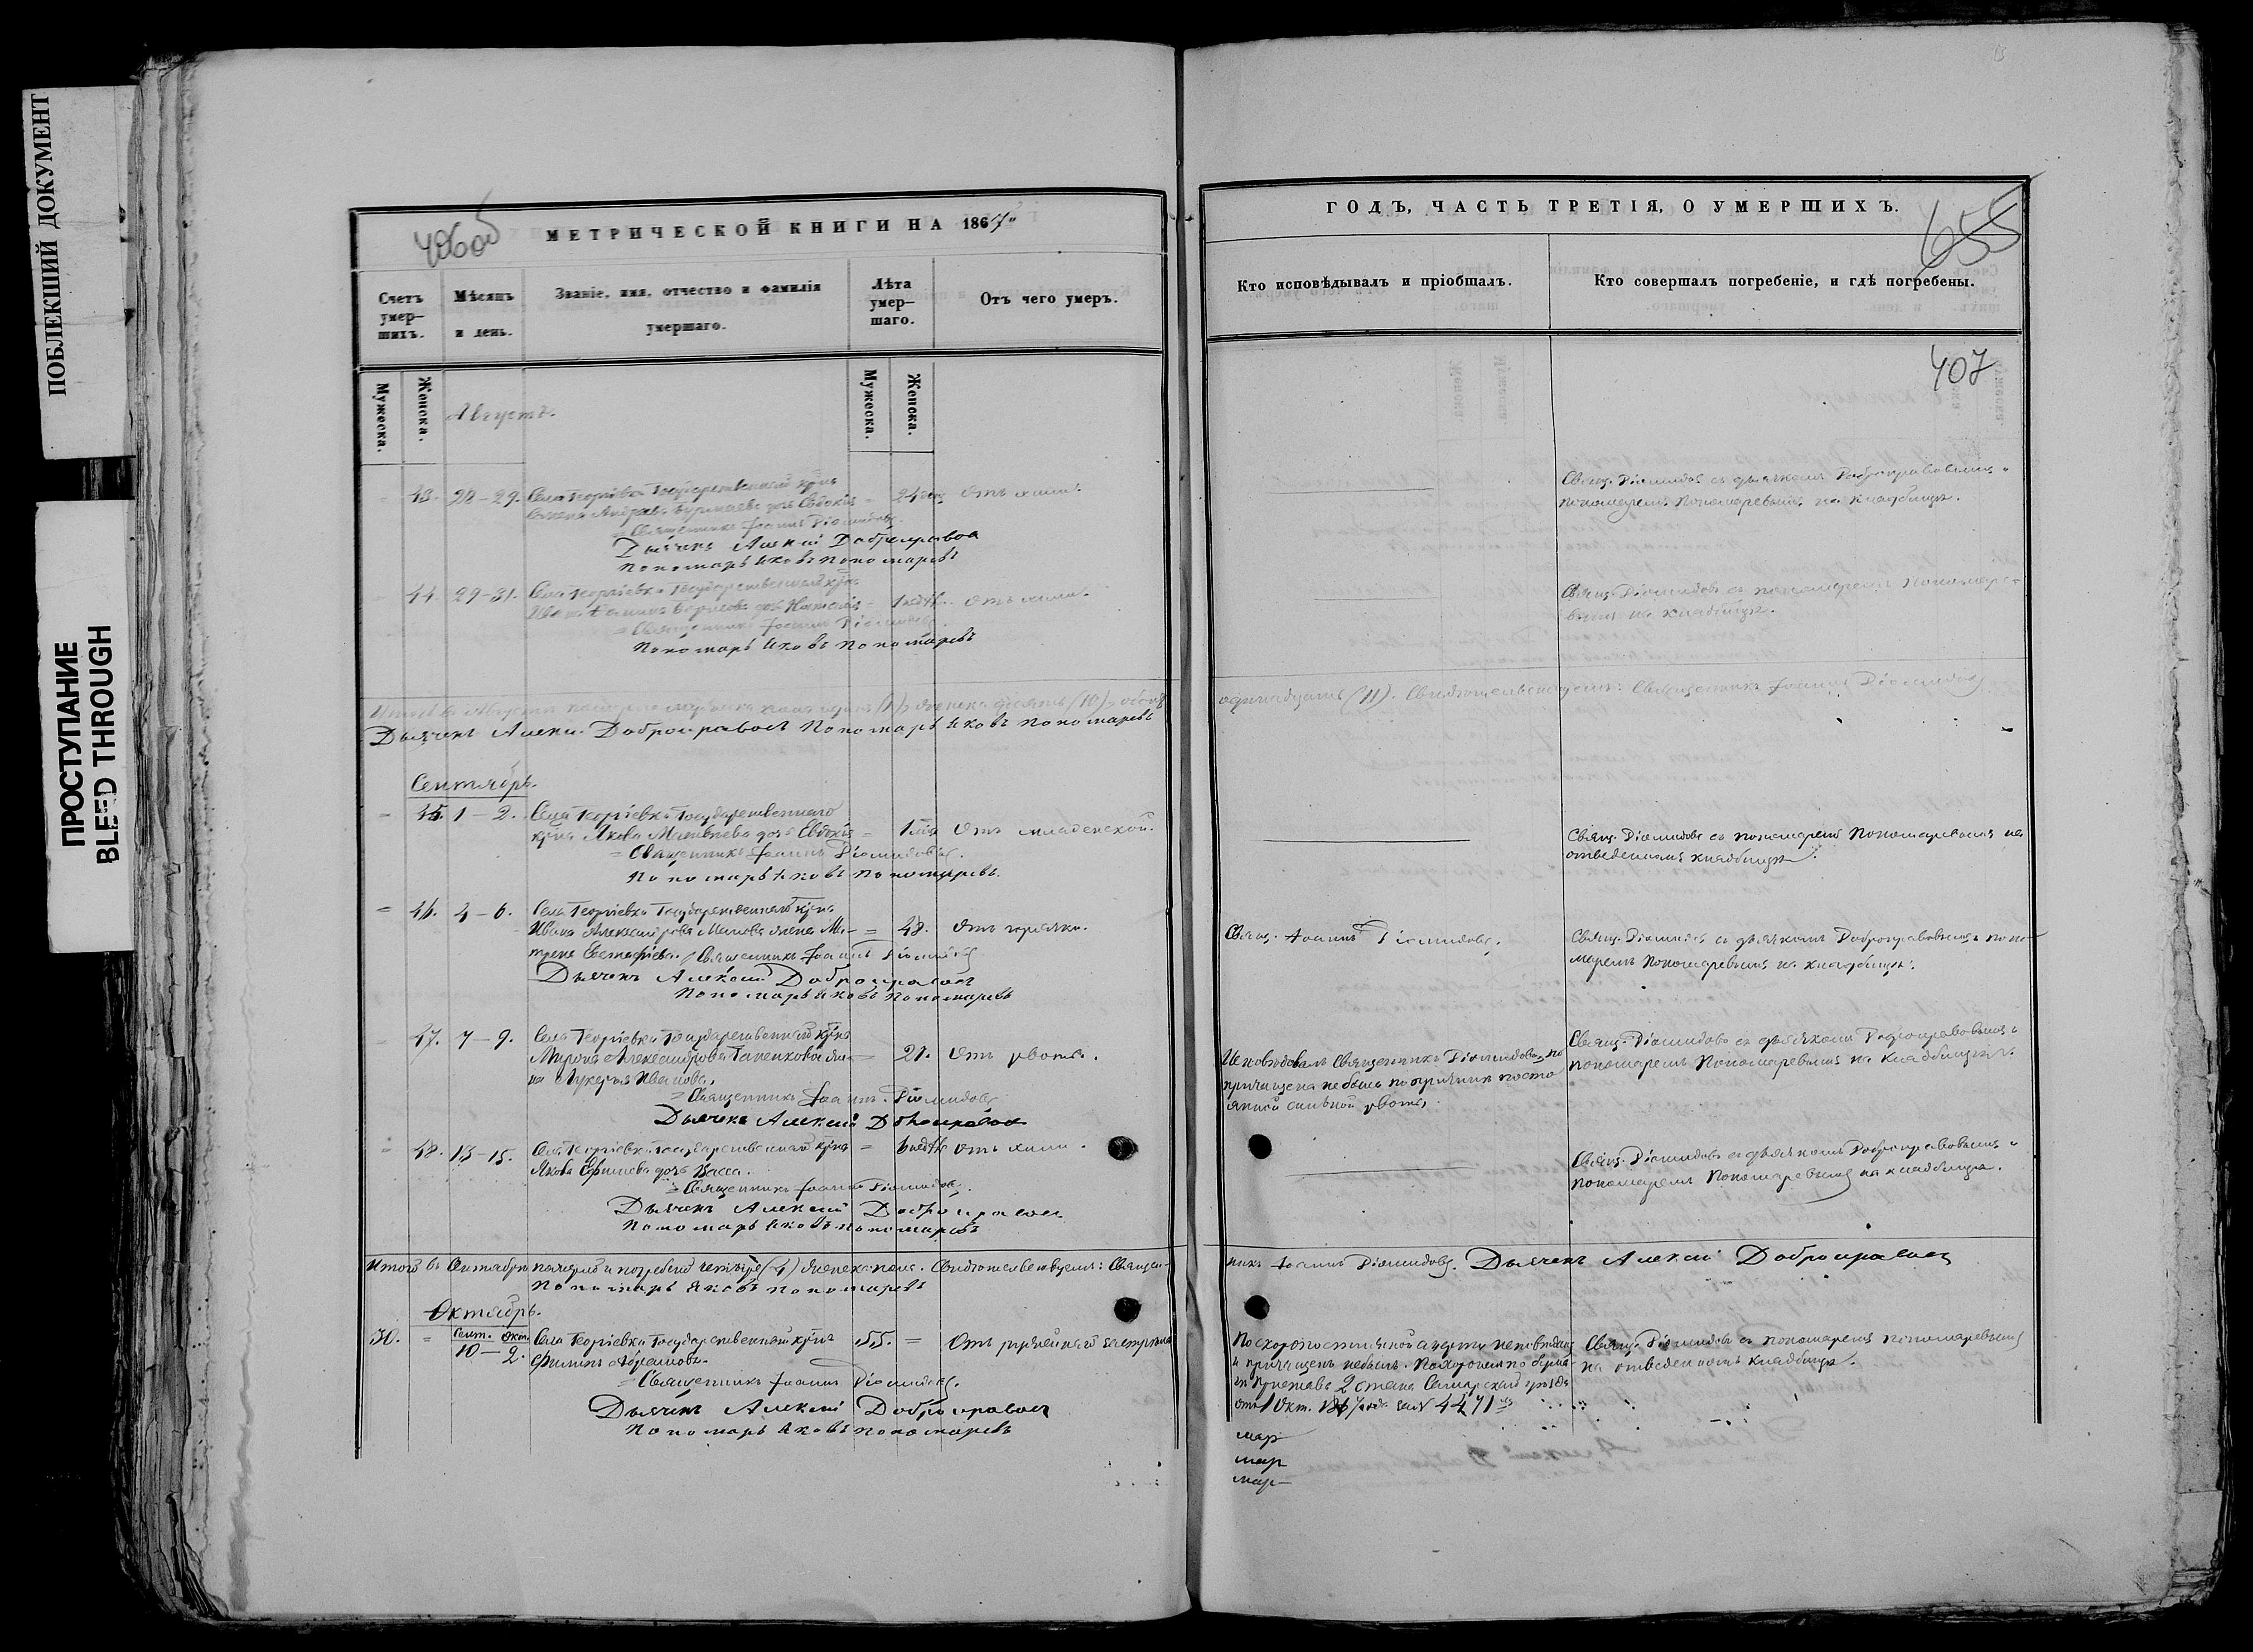 ПОБЛЕКШИЙ ДОКУМЕНТ
ПРОСТУПАНИЕ
BLEED THROUGH
406об
МЕТРИЧЕСКОЙ КНИГИ НА 1867
Счетъ умер-шихъ.
Мѣсяцъ и день.
Званіе, имя, отчество и фамилія умершаго.
Лѣта умер-шаго.
Отъ чего умеръ.
Мужеска.
Женска.
Мужеска.
Женска.
Августъ.
43. 28-29. Села Георгіевки Государственнаго крна
Андреева дочь Евдокія = 2
Священникъ Іоаннъ Діомидовъ
Дьячекъ Алексій Добронравовъ
Пономарь Іковъ Пономаревъ
44. 29-31. Села Георгіевки Государственнаго крна
Ивана Борисова дочь Наталія = 1 недѣл.
= Священникъ Іоаннъ Діомидовъ
Пономарь Іковъ Пономаревъ
Итого въ Августѣ (1), женска десять (10), обоего
Дьячекъ Алексій Добронравовъ Пономарь Іковъ Пономаревъ
Сентябрь.
= 45. 1-2. Села Георгіевки Государственнаго
крна Якова Матвѣева дочь Евдокія = 1 Отъ младенской.
= Священникъ Іоаннъ Діомидовъ.
Пономарь Іковъ Пономаревъ.
= 46. 4-6. Села Георгіевки Государственнаго крна
Ивана Александрова жена Ма- = 48. Отъ горячки.
трена Евстафіева. Священникъ Іоаннъ Діомидовъ
Дьячекъ Алексій Добронравовъ
Пономарь Іковъ Пономаревъ
= 47. 7-9. Села Георгіевки Государственнаго крна
Мирона Александрова же- = 21. Отъ рвоты.
на Лукерья Иванова.
= Священникъ Іоаннъ Діомидовъ
Дьячекъ Алексій Добронравовъ
= 48. 13-15. Села Георгіевки государственнаго крна = 6 недѣль
Якова Ефимова дочь Васса.
= Священникъ Іоаннъ Діомидовъ.
Дьячекъ Алексій Добронравовъ
Пономарь Іковъ Пономаревъ
Итого въ Сентябрѣ померло и погребено четыре (4) женска пола. Свидѣтельствуемъ: Священ-
Пономарь Яковъ Пономаревъ
Октябрь.
30. = Сент. Окт. 10-2. Села Георгіевки Государственный крнъ 55. = Отъ
Филиппъ Абрамовъ.
= Священникъ Іоаннъ Діомидовъ.
Дьячекъ Алексій Добронравовъ
Пономарь Іковъ Пономаревъ
ГОДЪ, ЧАСТЬ ТРЕТІЯ, О УМЕРШИХЪ.
655
Кто исповѣдывалъ и пріобщалъ.
Кто совершалъ погребеніе, и гдѣ погребены.
407
Свящ. Діомидовъ съ дьячкомъ Добронравовымъ и
пономаремъ Пономаревымъ на кладбищѣ.
Свящ. Діомидовъ съ пономаремъ Пономаре-
вымъ на кладбищѣ.
одинадцать (11). Свидѣтельствуемъ: Священникъ Іоаннъ Діомидовъ
Свящ. Діомидовъ съ пономаремъ Пономаревымъ на
отведенномъ кладбищѣ.
Свящ. Іоаннъ Діомидовъ.
Свящ. Діомидовъ съ дьячкомъ Добронравовымъ и поно-
маремъ Пономаревымъ на кладбищѣ.
Исповѣдовалъ Священникъ Діомидовъ, но
причащена не была по причинѣ посто
янной сильной рвоты.
Свящ. Діомидовъ съ дьячкомъ Добронравовымъ и
пономаремъ Пономаревымъ на кладбищѣ.
Свящ. Діомидовъ съ дьячкомъ Добронравовымъ и
пономаремъ Пономаревымъ на кладбищѣ.
никъ Іоаннъ Діомидовъ. Дьячекъ Алексій Добронравовъ
По скоропостижной смерти неисповѣданъ
и причащенъ небылъ. Похороненъ по бума-
гѣ Пристава 2 стана Самарскаго уѣзда
отъ 1 Окт. 1867 года за № 4471
Свящ. Діомидовъ съ пономаремъ Пономаревымъ
на отведенномъ кладбищѣ.
мар
мар
мар-